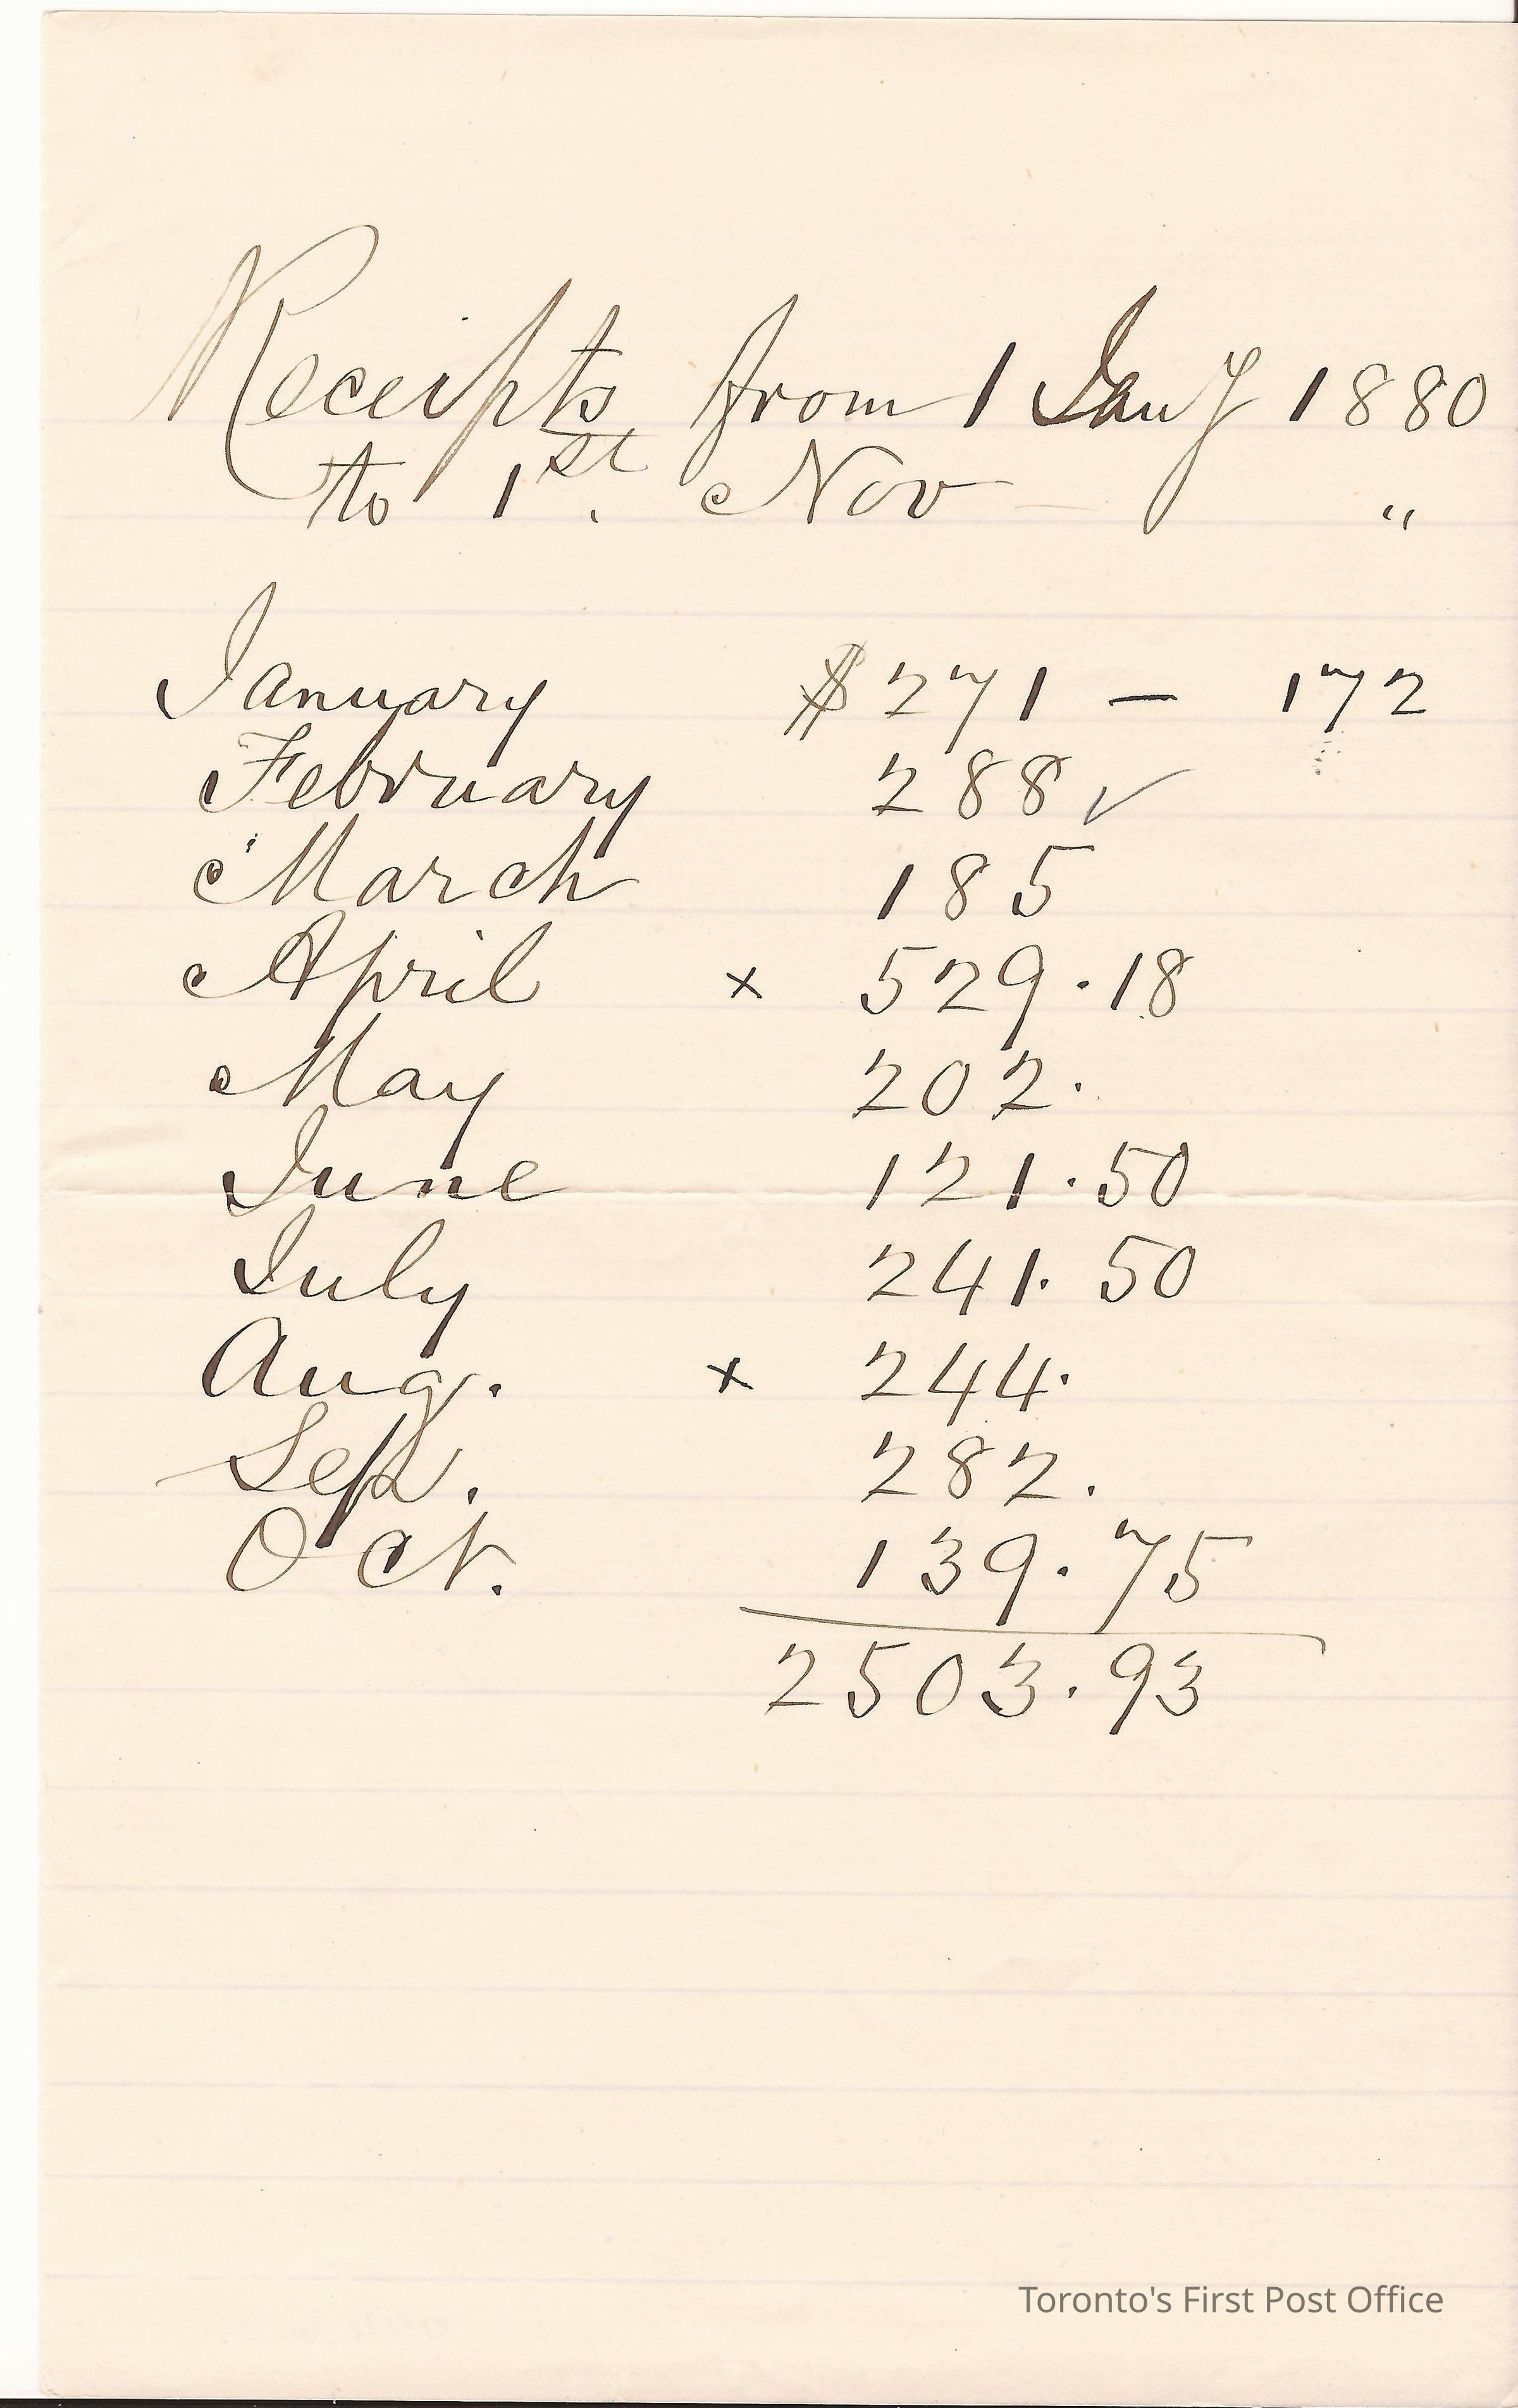 Receipts from 1 Jany 1880
to 1st. Nov — "
January $271 — 172
February 288 ✓
March 185
April x 529.18
May 202.
June 121.50
July 241.50
Aug. x 244.
Sept. 282.
Oct. 139.75
2503.93
Toronto's First Post Office